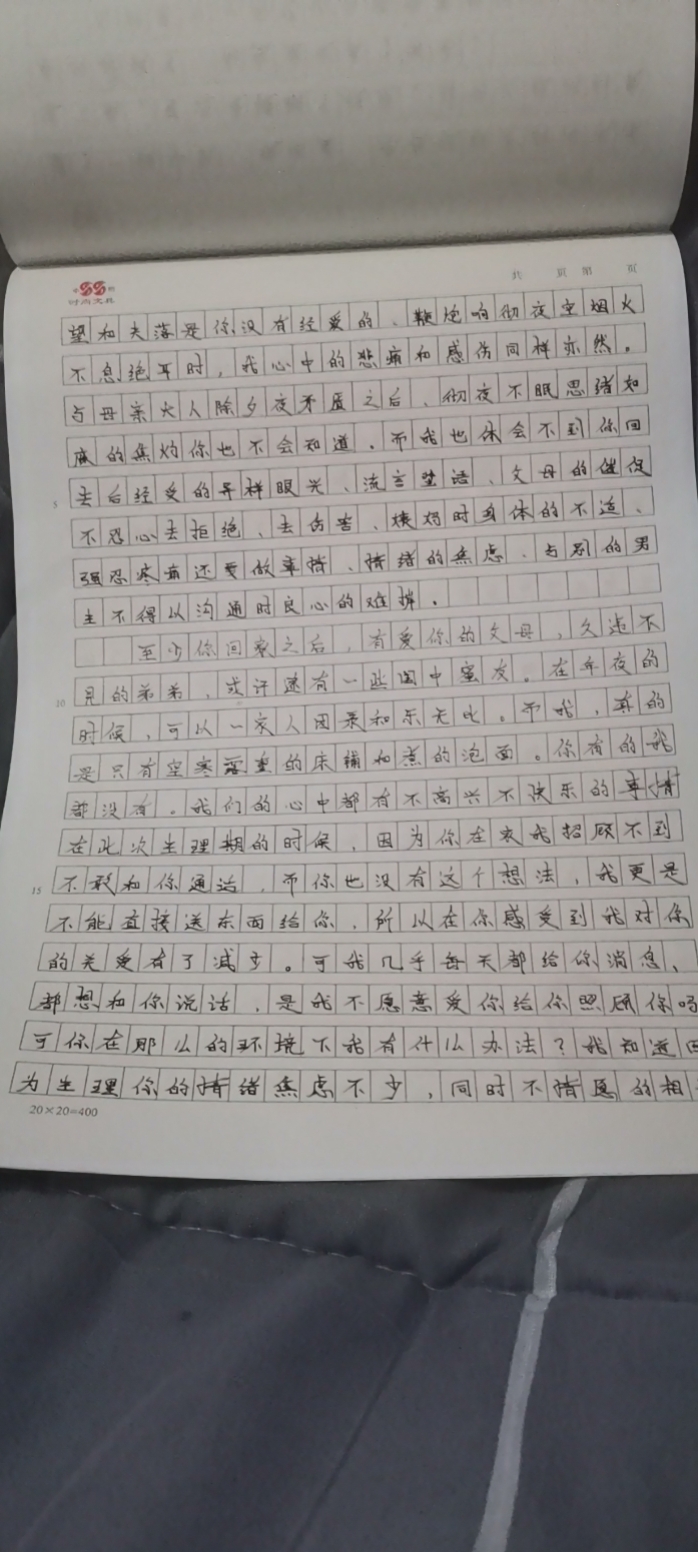 共 页 第 页
时尚文具
望和失落是你没有经受的、鞭炮响彻夜空烟火
不息绝耳时，我心中的悲痛和感伤同样亦然。
与母亲大人除夕夜矛盾之后、彻夜不眠思绪如
麻的焦灼你也不会知道。而我也体会不到你回
5
去后经受的异样眼光、流言蜚语、父母的催促
不忍心去拒绝、去伤害、姨妈时身体的不适、
强忍疼痛还要做事情、情绪的焦虑、与别的男
生不得以沟通时良心的难挨。
至少你回家之后，有爱你的父母，久违不
10
见的弟弟，或许还有一些闺中蜜友。在年夜的
时候，可以一家人团聚和乐无比。而我，有的
是只有空寒落重的床铺和煮的泡面。你有的我
都没有。我们的心中都有不高兴不快乐的事情
在此次生理期的时候，因为你在家我招顾不到
15
不敢和你通话，而你也没有这个想法，我更是
不能直接送东西给你，所以在你感受到我对你
的关爱有了减少。可我几乎每天都给你消息、
都想和你说话，是我不愿意爱你给你照顾你吗
可你在那么的环境下我有什么办法？我知道因
为生理你的情绪焦虑不少，同时不情愿的相
20×20=400